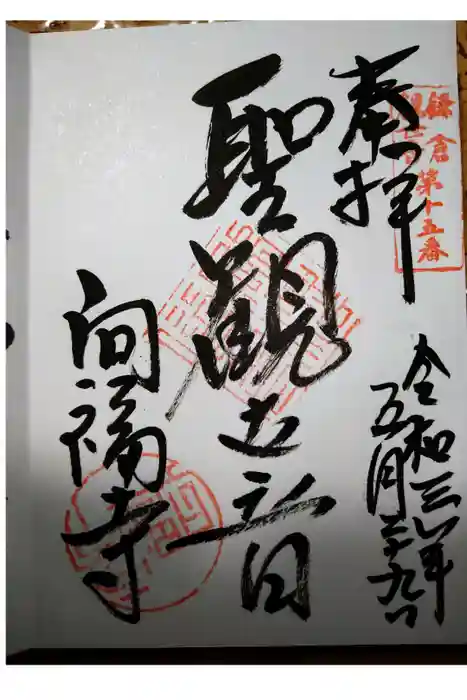 鎌倉第十五番
観世音
奉拝
令和三年
五月二十九日
聖観世音
向福寺